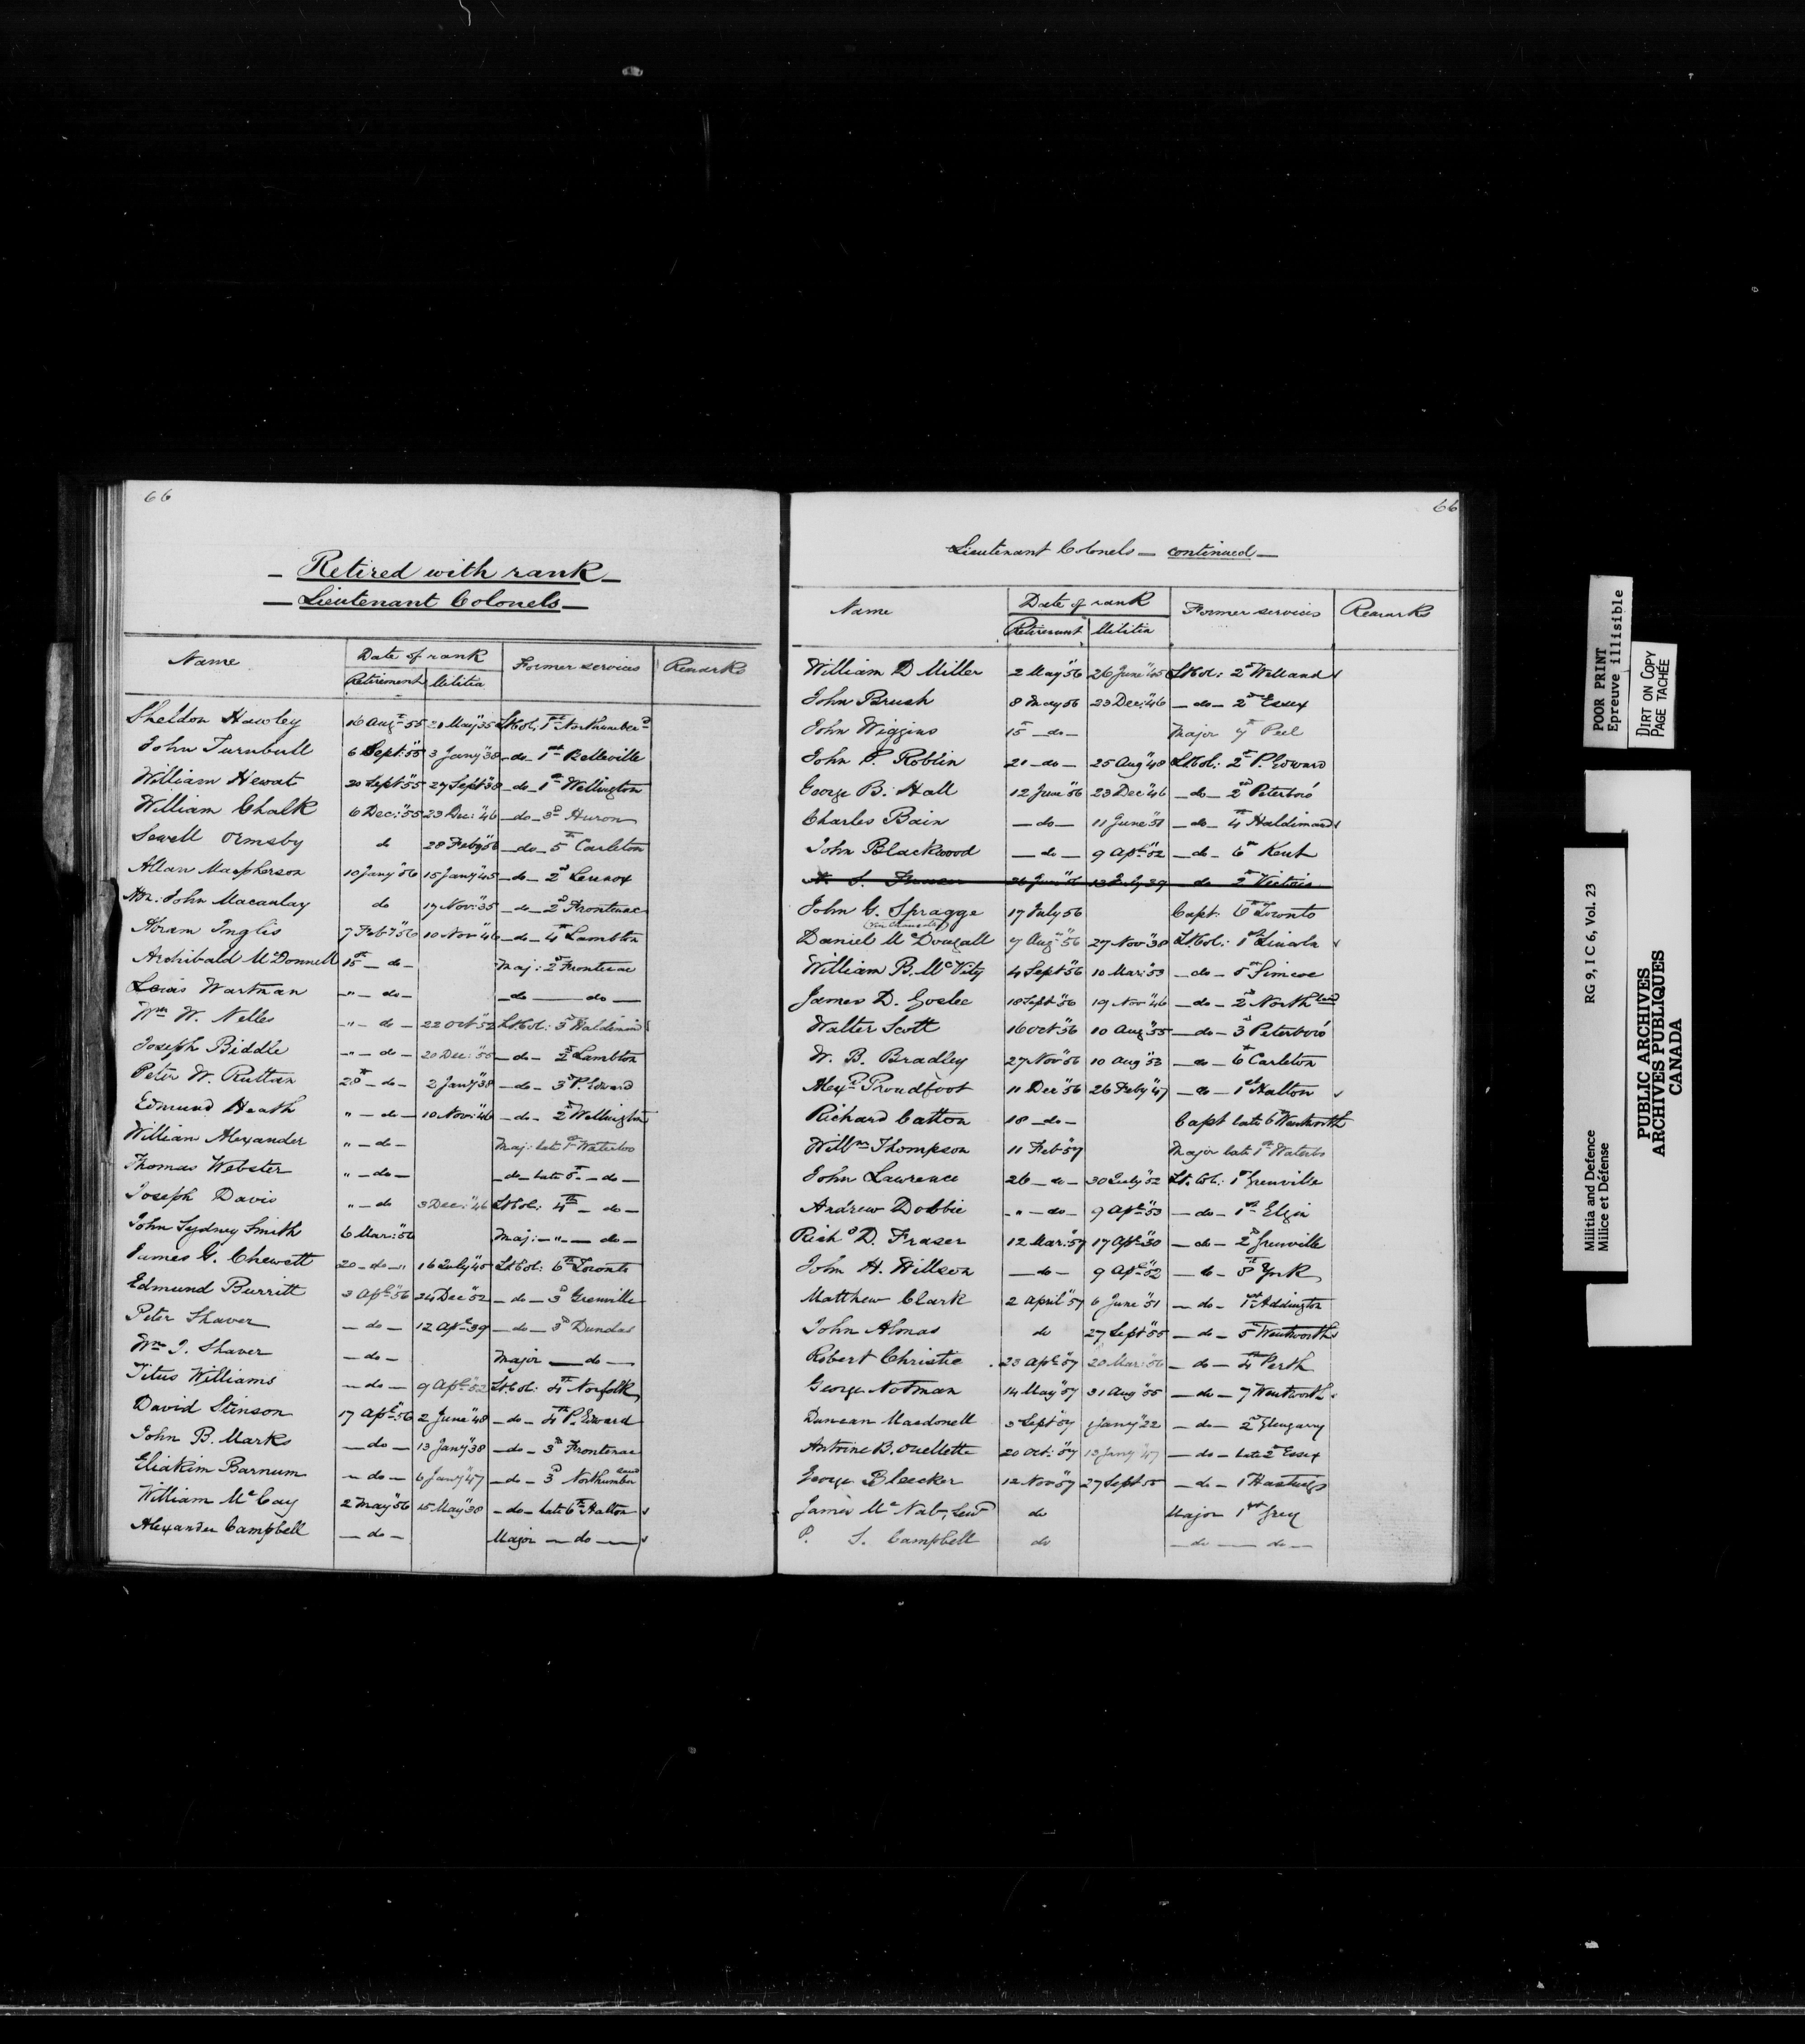 66
Retired with rank
Lieutenant Colonels
Name Date of rank Former services Remarks
Retirement Militia
Sheldon Hawley 16 Augt 55 May 35 Lt Col: 1st Northumber
John Turnbull 6 Sept: 55 3 Jany 38 -do- 1st Belleville
William Hewat 20 Sept 55 27 Sept 38 -do- 1st Wellington
William Chalk 6 Dec: 55 23 Dec: 46 -do- 3d Huron
Sewell Ormsby do 28 Feby -do- 5th Carleton
Allan Macpherson 10 Jany 56 15 Jany 45 -do- 2d Lennox
Hon: John Macaulay do 17 Nov: 35 -do- 2d Frontenac
Abram Inglis 7 Feb 56 10 Nov 46 -do- 4th Lambton
Archibald McDonnell 15th -do- Maj: 2d Frontenac
Lewis Wartman " -do- -do- do-
Wm W. Nelles " -do- 22 Oct 52 Lt Col: 3d Haldimand
Joseph Biddle " -do- 20 Dec: 55 -do- 2d Lambton
Peter W. Ruttan 28th -do- 2 Jany 38 -do- 3d P. Edward
Edmund Heath " -do- 10 Nov: 46 -do- 2d Wellington
William Alexander " -do- Maj: late Waterloo
Thomas Webster " -do- -do- late 5th -do-
Joseph Davis " -do 3 Dec: 46 Lt Col: 4th -do-
John Sydney Smith 6 Mar: 56 Maj: -"- do-
James G. Chewett 20 -do- 16 July 45 Lt Col: 6th Toronto
Edmund Burritt 3 Apl 56 24 Dec 52 -do- 3d Grenville
Peter Shaver -do- 12 Apl 39 -do- 3d Dundas
Wm J. Shaver -do- Major -do-
Titus Williams -do- 9 Apl 52 Lt Col: 4th Norfolk
David Stinson 17 Apl 56 2 June 48 -do- 4th P. Edward
John B. Marks -do- 13 Jany 38 -do- 3d Frontenac
Eliakim Barnum -do- 6 Jany 47 -do- 3d Northumberland
William McCay 2 May 56 15 May 38 -do- late 6th Halton
Alexander Campbell -do- Major -do-
66
Lieutenant Colonels - continued -
Name Date of rank Former services Remarks
Retirement Militia
William D Miller 2 May 56 26 June 45 Lt Col: 2d Welland
John Brush 8 May 56 23 Dec: 46 -do- 2d Essex
John Wiggins 15 -do- Major 7th Peel
John P. Roblin 21 -do- 25 Aug 48 Lt Col: 2d P. Edward
George B. Hall 12 June 56 23 Dec 46 -do- 2d Peterboro'
Charles Bain -do- 11 June 51 -do- 4th Haldimand
John Blackwood -do- 9 Apl 52 -do- 6th Kent
S. Fraser -do- 2d Victoria
John G. Spragge 17 July 56 Capt: 6th Toronto
Daniel McDougall 7 Aug 56 27 Nov 38 Lt Col: 1st Lincoln
William B. McVity 4 Sept 56 10 Mar: 53 -do- 5th Simcoe
James D. Goslee 18 Sept 56 19 Nov 46 -do- 2d Northland
Walter Scott 16 Oct 56 10 Aug 55 -do- 3d Peterboro'
W. B. Bradley 27 Nov 56 10 Aug 53 -do- 6th Carleton
Alexr Proudfoot 11 Dec 56 26 Feby 47 -do- 1st Halton
Richard Catton 18 -do- Capt late 6th Wentworth
Willm Thompson 11 Feb 57 Major late 1st Waterlo
John Lawrence 26 -do- 30 July 52 Lt. Col: 1st Grenville
Andrew Dobbie -"- do- 9 Apl 53 -do- 1st Elgin
Richd D. Fraser 12 Mar: 57 17 Apl 30 -do- 2d Grenville
John H. Willson -do- 9 Apl 52 -do- 8th York
Matthew Clark 2 April 57 6 June 51 -do- 1st Addington
John Almas do 27 Sept 55 -do- 5th Wentworth
Robert Christie 23 Apl 57 20 Mar: 56 -do- 4th Perth
George Notman 14 May 57 31 Aug 55 -do- 7 Wentworth
Duncan Macdonell 3 Sept 57 1 Jany 22 -do- 2d Glengarry
Antoine B. Ouellette 20 Oct: 57 13 Jany 47 -do- late 2d Essex
George Bleecker 12 Nov 57 27 Sept 55 -do- 1 Hastings
James McNab, Senr do Major 1st Grey
P. S. Campbell do -do- do-
POOR PRINT
Epreuve illisible
DIRT ON COPY
PAGE TACHÉE
Militia and Defence
Milice et Défense
RG 9, I C 6, Vol. 23
PUBLIC ARCHIVES
ARCHIVES PUBLIQUES
CANADA